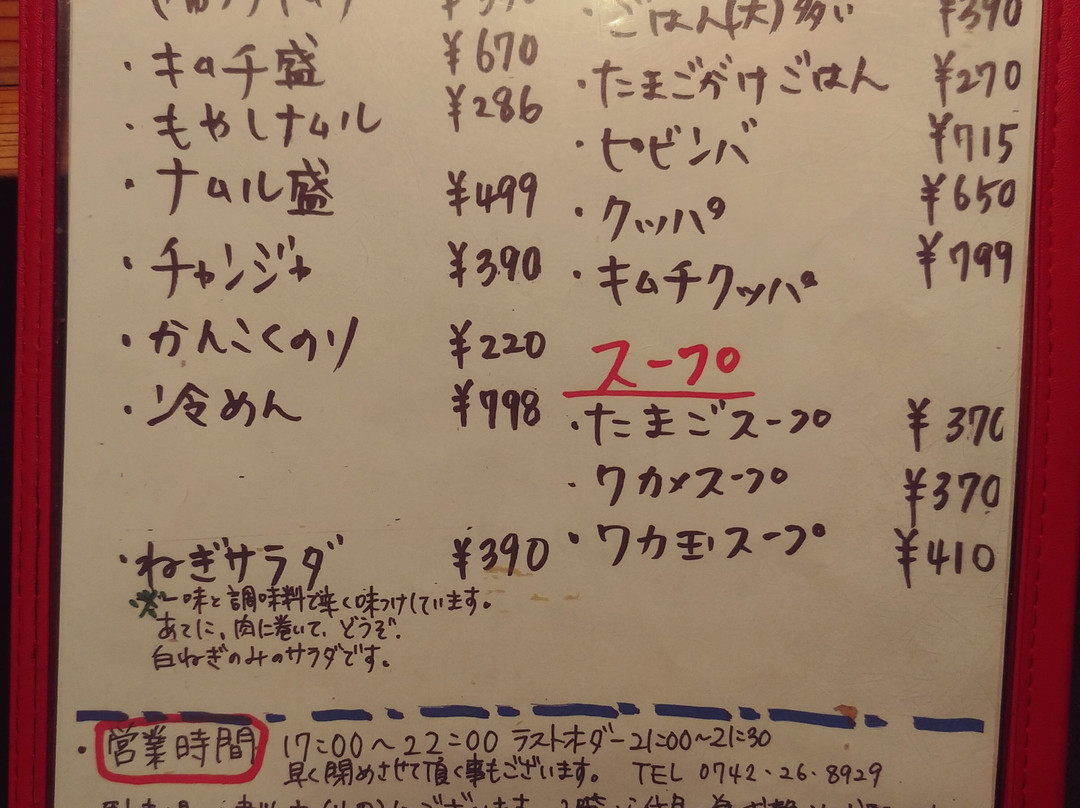 ・キムチ盛 ¥670
・もやしナムル ¥286
・ナムル盛 ¥499
・チャンジャ ¥390
・かんこくのり ¥220
・冷めん ¥798
・ねぎサラダ ¥390
※一味と調味料で辛く味つけしています。
あてに、肉に巻いて、どうぞ.
白ねぎのみのサラダです。
・ごはん(大)多い ¥390
・たまごがけごはん ¥270
・ビビンバ ¥715
・クッパ ¥650
・キムチクッパ ¥799
スープ
・たまごスープ ¥370
・ワカメスープ ¥370
・ワカ玉スープ ¥410
・営業時間 17:00〜22:00 ラストオーダー21:00〜21:30
早く閉めさせて頂く事もございます。 TEL 0742・26・8929